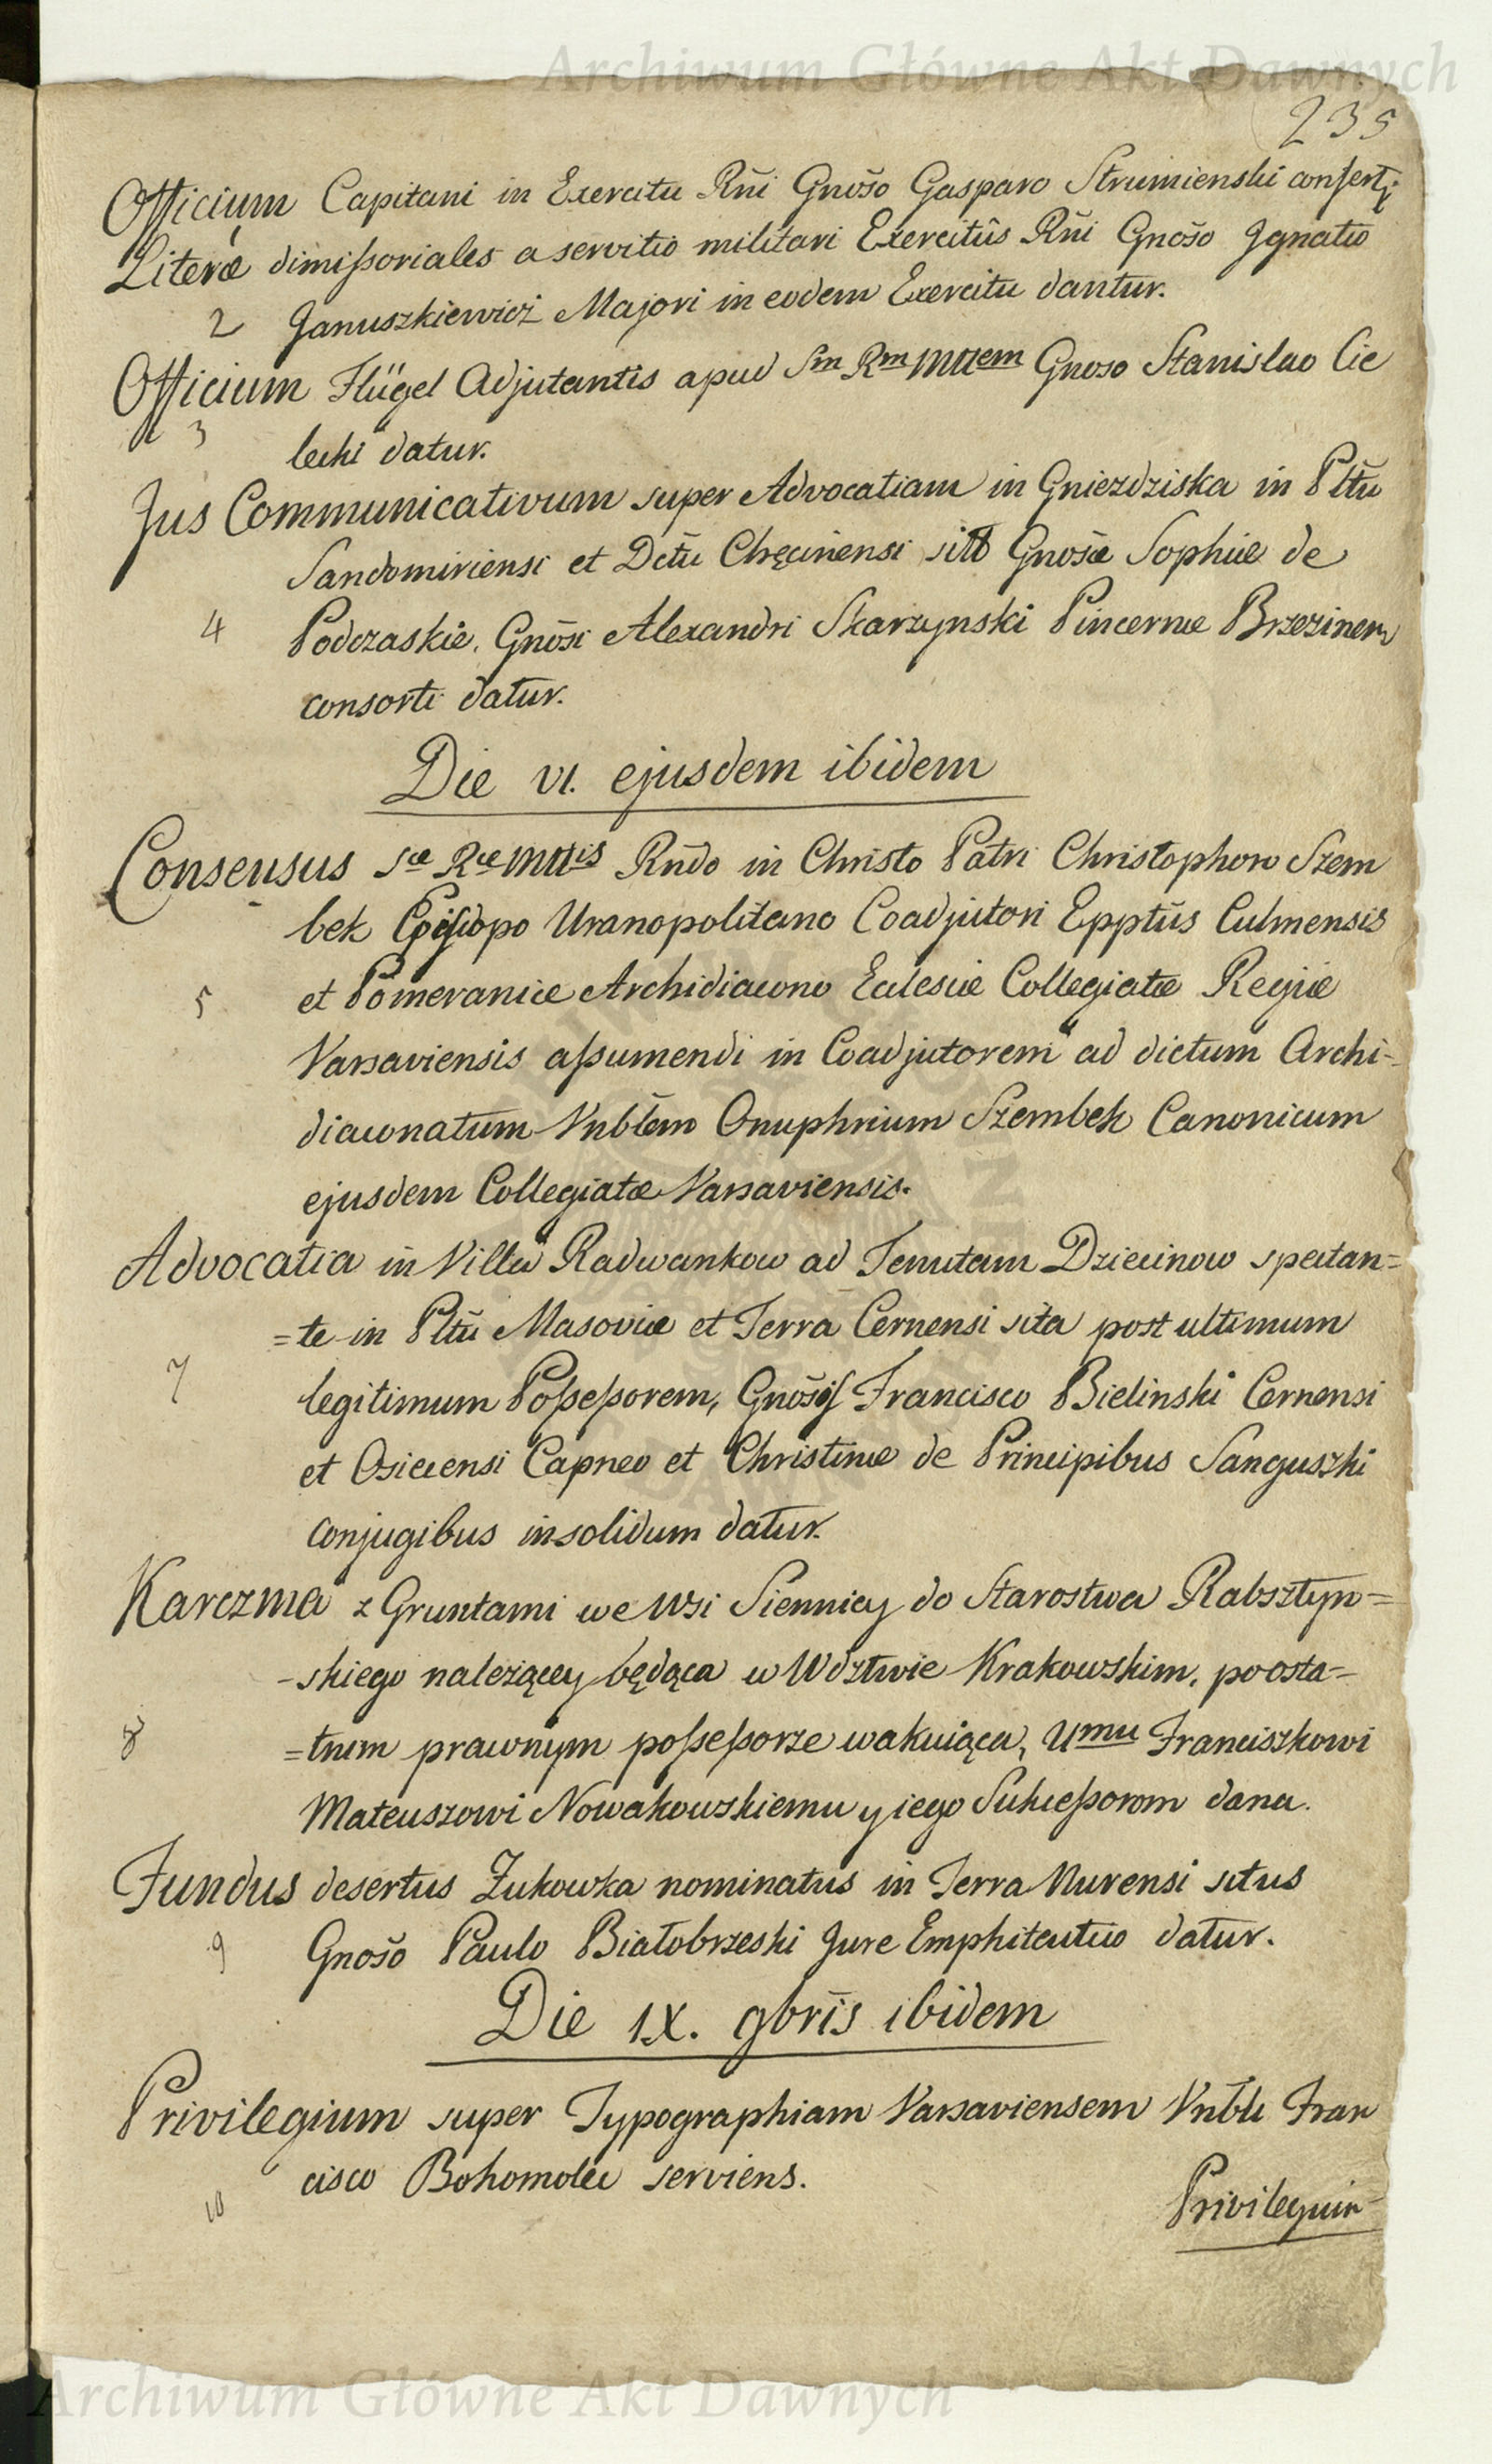 Archiwum Główne Akt Dawnych
235
Officium Capitani in Exercitu Rñi Gnošo Gasparo Strumienski confertꝫ
Literæ dimissoriales a servitio militari Exercitûs Rñi Gnošo Ignatio
2 Januszkiewicz Majori in eodem Exercitu dantur.
Officium Flügel Adjutantis apud Sm Rm Mttem Gnoso Stanislao Cie
3 lecki datur.
Jus Communicativum super Advocatiam in Gniezdziska in Pltũ
Sandomiriensi et Dctũ Chęcinensi sit Gnošæ Sophiæ de
4 Podczaskie, Gnõsi Alexandri Skarzynski Pincernæ Brzezinen
consorti datur.
Die VI. ejusdem ibidem
Consensus Sæ Ræ Mttis Rñdo in Christo Patri Christophoro Szem
bek Episcopo Uranopolitano Coadjutori Epptũs Culmensis
5 et Pomeraniæ Archidiacono Eclesiæ Collegiatæ Regiæ
Varsaviensis assumendi in Coadjutorem ad dictum Archi-
diaconatum Vnblẽm Onuphrium Szembek Canonicum
ejusdem Collegiatæ Varsaviensis.
Advocatia in Villa Radwankow ad Tenutam Dziecinow spectan=
=te in Pltũ Masoviæ et Terra Cernensi sita post ultimum
7 legitimum Possessorem, Gnošis Francisco Bielinski Cernensi
et Osiecensi Capneo et Christinæ de Principibus Sanguszki
conjugibus insolidum datur.
Karczma z Gruntami we Wsi Siennicy do Starostwa Rabsztyn=
-skiego należącey będąca w Wdztwie Krakowskim, po osta=
8 =tnim prawnym possessorze wakuiąca, Umu Franciszkowi
Mateuszowi Nowakowskiemu y iego Sukcessorom dana.
Fundus desertus Żukowka nominatus in Terra Nurensi situs
9 Gnošo Paulo Białobrzeski Jure Emphiteutico datur.
Die IX. 9brĩs ibidem
Privilegium super Typographiam Varsaviensem Vnbli Fran
10 cisco Bohomolec serviens.
Privilegium
Archiwum Główne Akt Dawnych